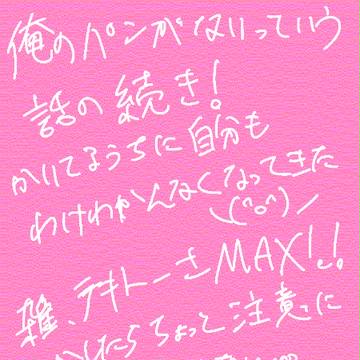 俺のペンがないっていう
話の続き!
かいてるうちに自分も
わけわかんなくなってきた
＼(^o^)／
雑、テキトーさMAX!!
したらちょっと注意に